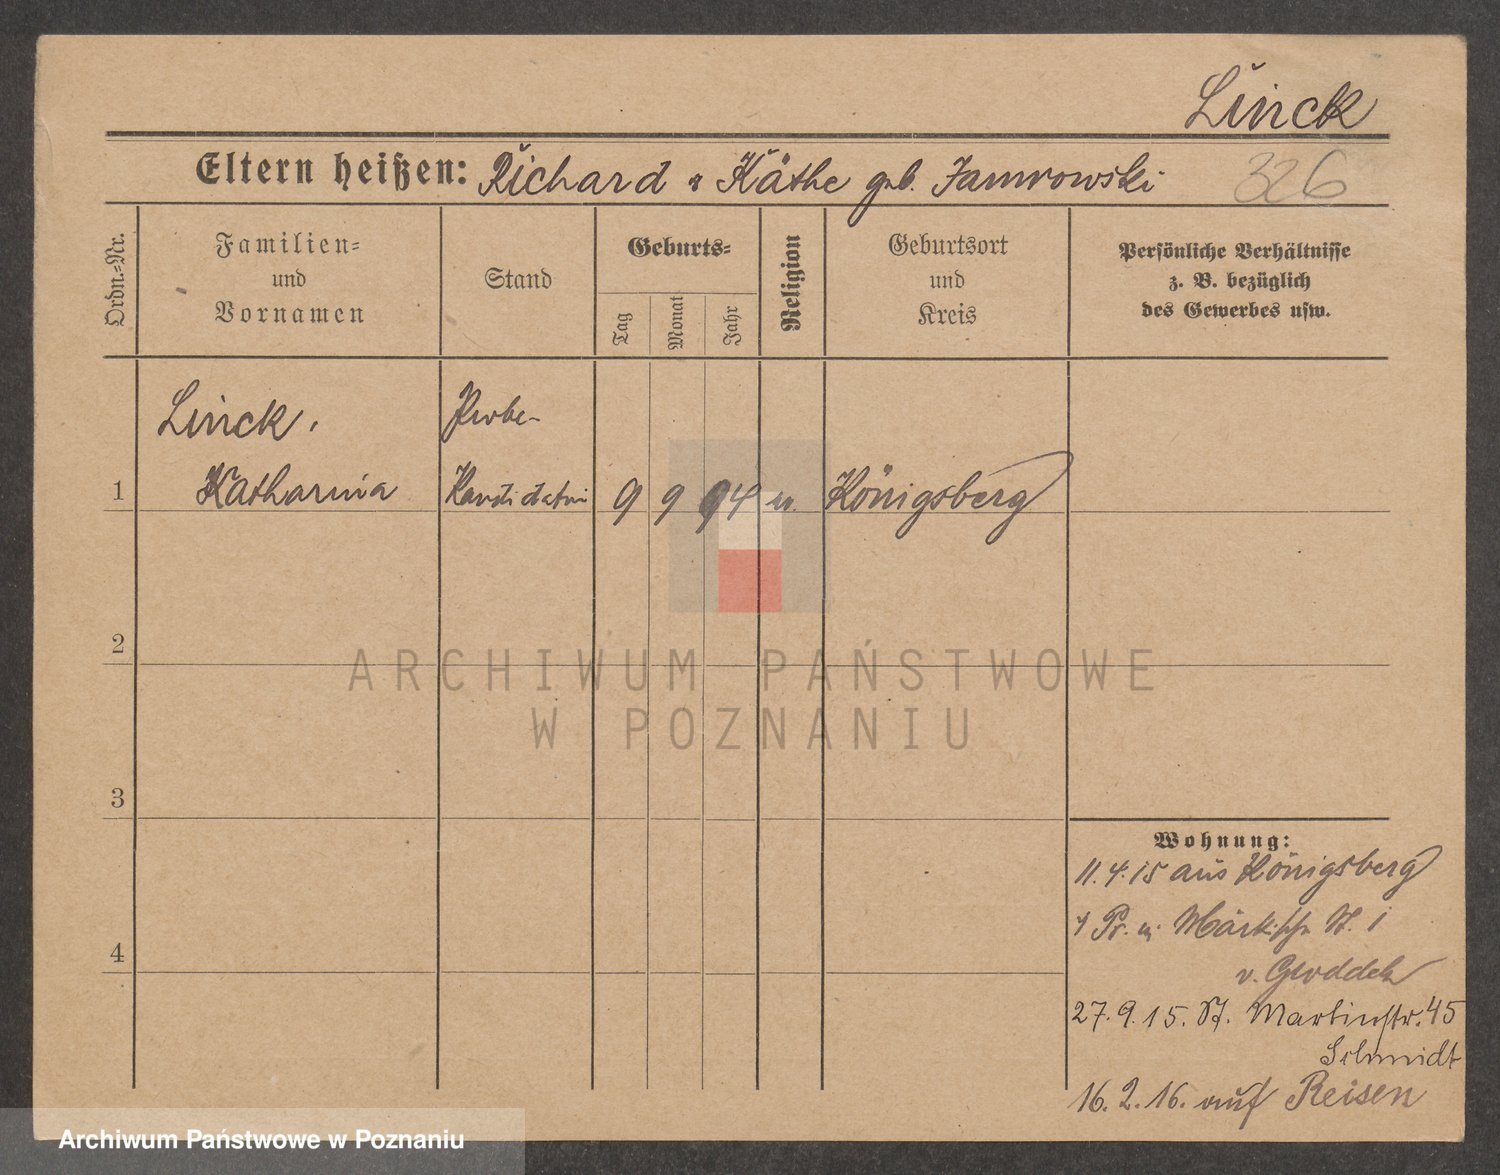 Linck
Eltern heißen: Richard u Käthe geb. Jamrowski 326
Ordn.=Nr.
Familien=
und
Vornamen
Stand
Geburts=
Tag
Monat
Jahr
Religion
Geburtsort
und
Kreis
Persönliche Verhältnisse
z. B. bezüglich
des Gewerbes usw.
Linck, Probe-
1 Katharina Kandidatin 9 9 94 Königsberg
2
ARCHIWUM PAŃSTWOWE
W POZNANIU
3
Wohnung:
11.4.15 aus Königsberg
Märkische St. 1
v. Groddek
4
27.9.15. St. Martinstr. 45
Schmidt
16.2.16. auf Reisen
Archiwum Państwowe w Poznaniu